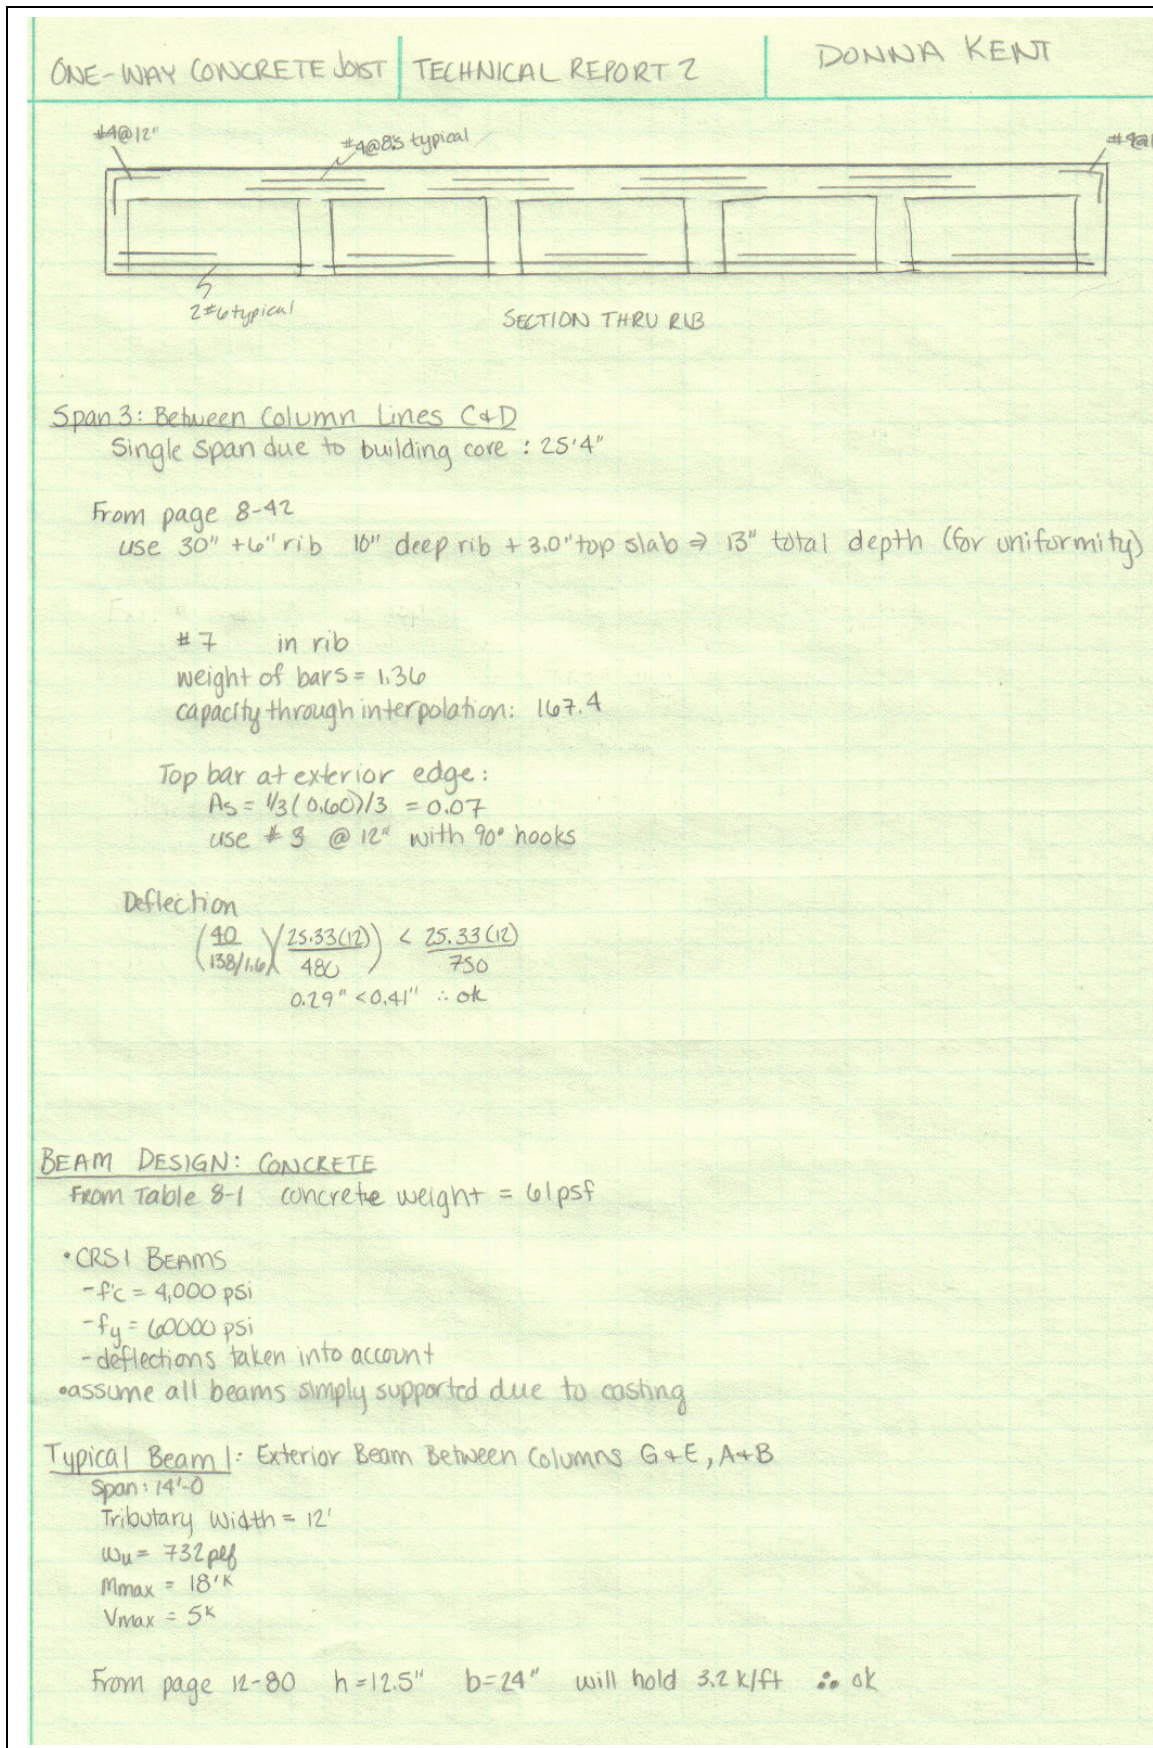 ONE-WAY CONCRETE JOIST TECHNICAL REPORT 2 DONNA KENT
#4@12"
#4@8.5 typical
2#6 typical
SECTION THRU RIB
Span 3: Between Column Lines C+D
Single span due to building core : 25'4"
From page 8-42
use 30" + 6" rib 10" deep rib + 3.0" top slab ⇒ 13" total depth (for uniformity)
#7 in rib
weight of bars = 1.36
capacity through interpolation: 167.4
Top bar at exterior edge:
As = 1/3(0.60)/3 = 0.07
use #3 @ 12" with 90° hooks
Deflection
(40/138/1.6)(25.33(12)/480) < 25.33(12)/750
0.29" < 0.41" ∴ ok
BEAM DESIGN: CONCRETE
From Table 8-1 concrete weight = 61psf
• CRSI BEAMS
- f'c = 4,000 psi
- fy = 60000 psi
- deflections taken into account
• assume all beams simply supported due to casting
Typical Beam 1: Exterior Beam Between Columns G+E, A+B
Span: 14'-0
Tributary Width = 12'
wu = 732 plf
Mmax = 18'k
Vmax = 5k
From page 12-80 h=12.5" b=24" will hold 3.2 k/ft ∴ ok